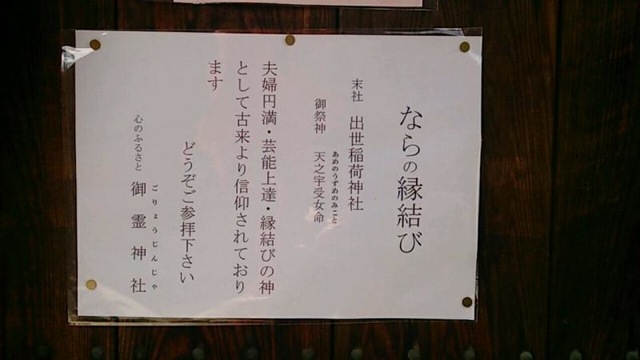 ならの縁結び
末社 出世稲荷神社
御祭神 天之宇受女命
あめのうずめのみこと
夫婦円満・芸能上達・縁結びの神
として古来より信仰されており
ます
どうぞご参拝下さい
心のふるさと 御霊神社
ごりょうじんじゃ